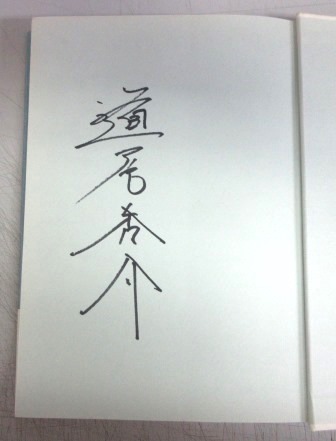 道尾秀介